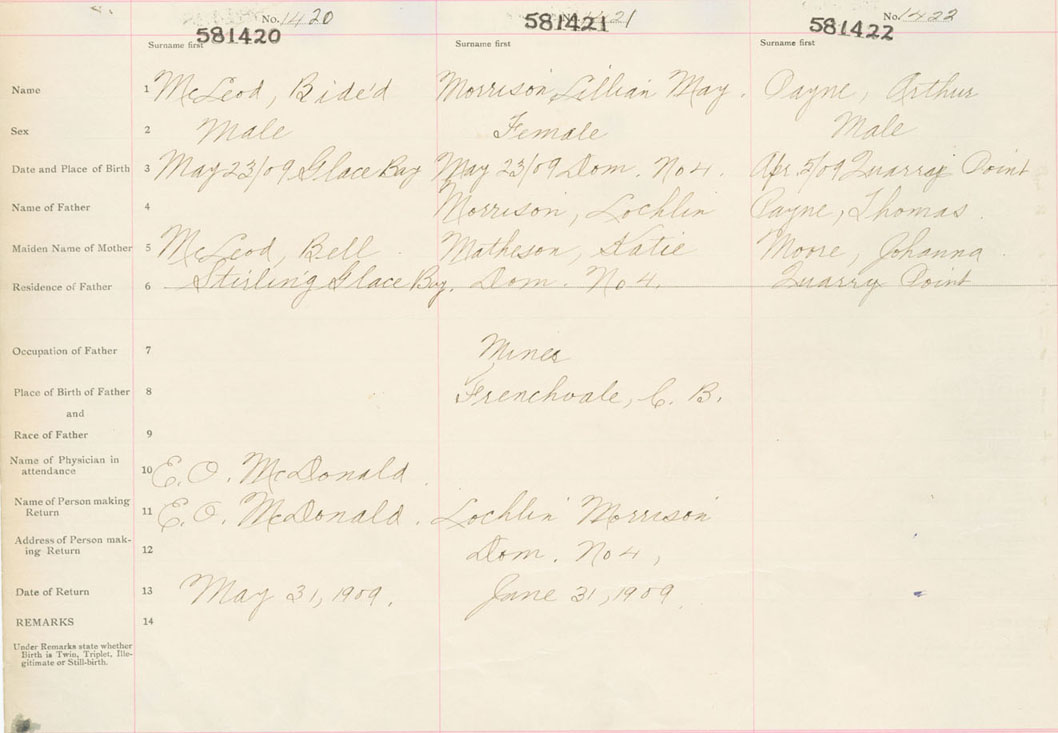 No. 1420 No. 1421 No. 1422
581420 581421 581422
Surname first Surname first Surname first
Name 1 McLeod, Bide'd Morrison, Lillian May. Payne, Arthur
Sex 2 Male Female Male
Date and Place of Birth 3 May 23/09 Glace Bay May 23/09 Dom. No 4. Apr 5/09 Quarray Point
Name of Father 4 Morrison, Lochlin Payne, Thomas.
Maiden Name of Mother 5 McLeod, Bell. Matheson, Katie Moore, Johanna.
Residence of Father 6 Stirling Glace Bay. Dom. No 4. Quarry Point
Occupation of Father 7 Miner
Place of Birth of Father 8 Frenchvale, C. B.
and
Race of Father 9
Name of Physician in
attendance 10 E. O. McDonald.
Name of Person making
Return 11 E. O. McDonald. Lochlin Morrison
Address of Person mak-
ing Return 12 Dom. No 4,
Date of Return 13 May 31, 1909. June 31, 1909.
REMARKS 14
Under Remarks state whether
Birth is Twin, Triplet, Ille-
gitimate or Still-birth.